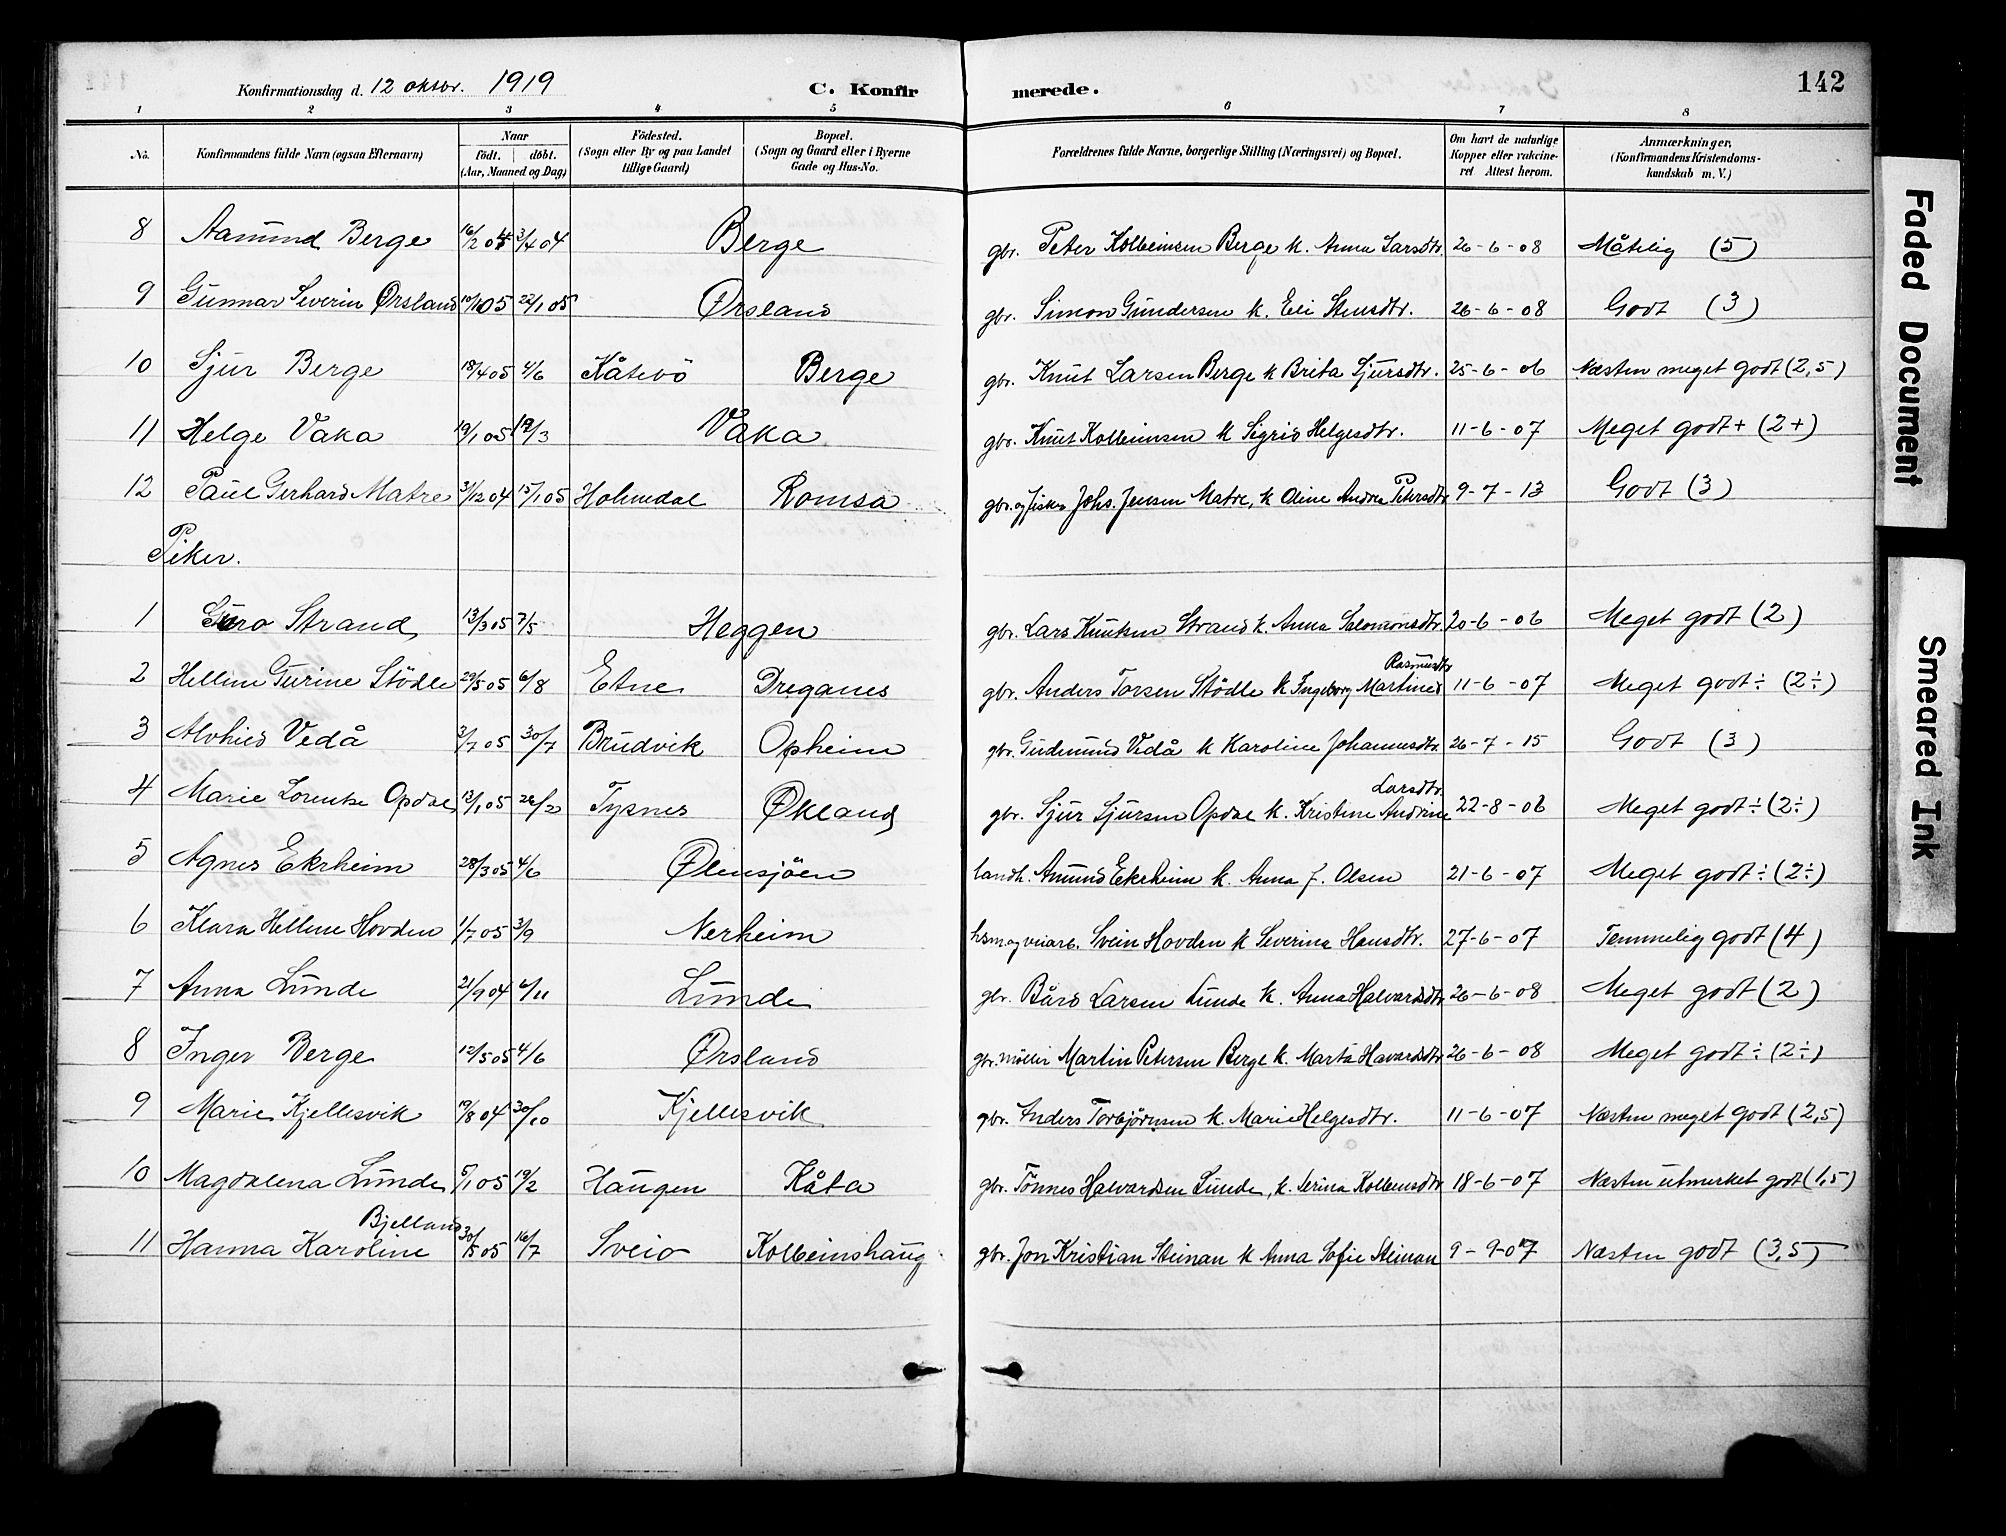 Konfirmationsdag d. 12 oktbr. 1919
C. Konfirmerede.
142
1 2 3 4 5 6 7 8
No.
Konfirmandens fulde Navn (ogsaa Efternavn)
Naar
födt. döbt.
(Aar, Maaned og Dag)
Födested.
(Sogn eller By og paa Landet
tillige Gaard)
Bopæl.
(Sogn og Gaard eller i Byerne
Gade og Hus-No.
Forældrenes fulde Navne, borgerlige Stilling (Næringsvei) og Bopæl.
Om havt de naturlige
Kopper eller vakcine-
ret Attest herom.
Anmærkninger,
(Konfirmandens Kristendoms-
kundskab m. V.)
8 Aamund Berge 16/2 04 3/4 04 Berge gbr. Peter Kolbeinsen Berge k. Anna Larsdtr. 26-6-08 Måtelig (5)
9 Gunnar Severin Ørsland 10/1 05 22/1 05 Ørsland gbr. Simon Gundersen k. Eli Stensdtr. 26-6-08 Godt (3)
10 Sjur Berge 18/4 05 4/6 Kåtevö Berge gbr. Knut Larsen Berge k Brita Sjursdtr. 25-6-06 Næsten meget godt (2,5)
11 Helge Vaka 19/1 05 19/3 Vaka gbr. Knut Kolbeinsen k Sigrid Helgesdtr. 11-6-07 Meget godt + (2+)
12 Paul Gerhard Matre 31/12 04 15/1 05 Holmedal Romsa gbr. og fisker Johs. Jensen Matre, k Oline Andrea Petersdtr 9-7-13 Godt (3)
Piker.
1 Guro Strand 13/3 05 7/5 Heggen gbr. Lars Knutsen Strand k. Anna Salomonsdtr 20-6-06 Meget godt (2)
2 Helline Gurine Stödle 29/5 05 6/8 Etne Dreganes gbr. Anders Torsen Stödle k Ingeborg Martine Rasmusdtr 11-6-07 Meget godt ÷ (2÷)
3 Alvhild Vedå 3/7 05 30/7 Brudvik Opheim gbr. Gudmund Vedå k Karoline Johannesdtr 26-7-15 Godt (3)
4 Marie Lorentse Opdal 13/1 05 26/2 Tysnes Økland gbr. Sjur Sjursen Opdal k. Kristine Andrine Larsdtr. 22-8-06 Meget godt ÷ (2÷)
5 Agnes Ekrheim 28/3 05 4/6 Ølensjöen landh. Amund Ekrheim k. Anna f. Olsen 21-6-07 Meget godt ÷ (2÷)
6 Klara Helline Hovden 1/7 05 3/9 Nerheim hsm og veiarb. Svein Hovden k Severina Hansdtr. 27-6-07 Temmelig godt (4)
7 Anna Lunde 21/9 04 6/11 Lunde gbr. Bård Larsen Lunde k. Anna Halvardsdtr 26-6-08 Meget godt (2)
8 Inger Berge 12/5 05 4/6 Ørsland gbr. möller Martin Petersen Berge k. Marta Havardsdtr 26-6-08 Meget godt ÷ (2÷)
9 Marie Kjellesvik 19/8 04 30/10 Kjellesvik gbr. Anders Torbjörnsen k. Marie Helgesdtr. 11-6-07 Næsten meget godt (2,5)
10 Magdalena Lunde 5/1 05 19/2 Haugen Kåta gbr. Tönnes Halvardsen Lunde, k. Serina Kolbeinsdtr 18-6-07 Næsten utmerket godt (1,5)
11 Hanna Karoline Bjelland 30/5 05 16/7 Sveio Kolbeinshaug gbr. Jon Kristian Steinan k Anna Sofie Steinan 9-9-07 Næsten godt (3,5)
Faded Document
Smeared Ink